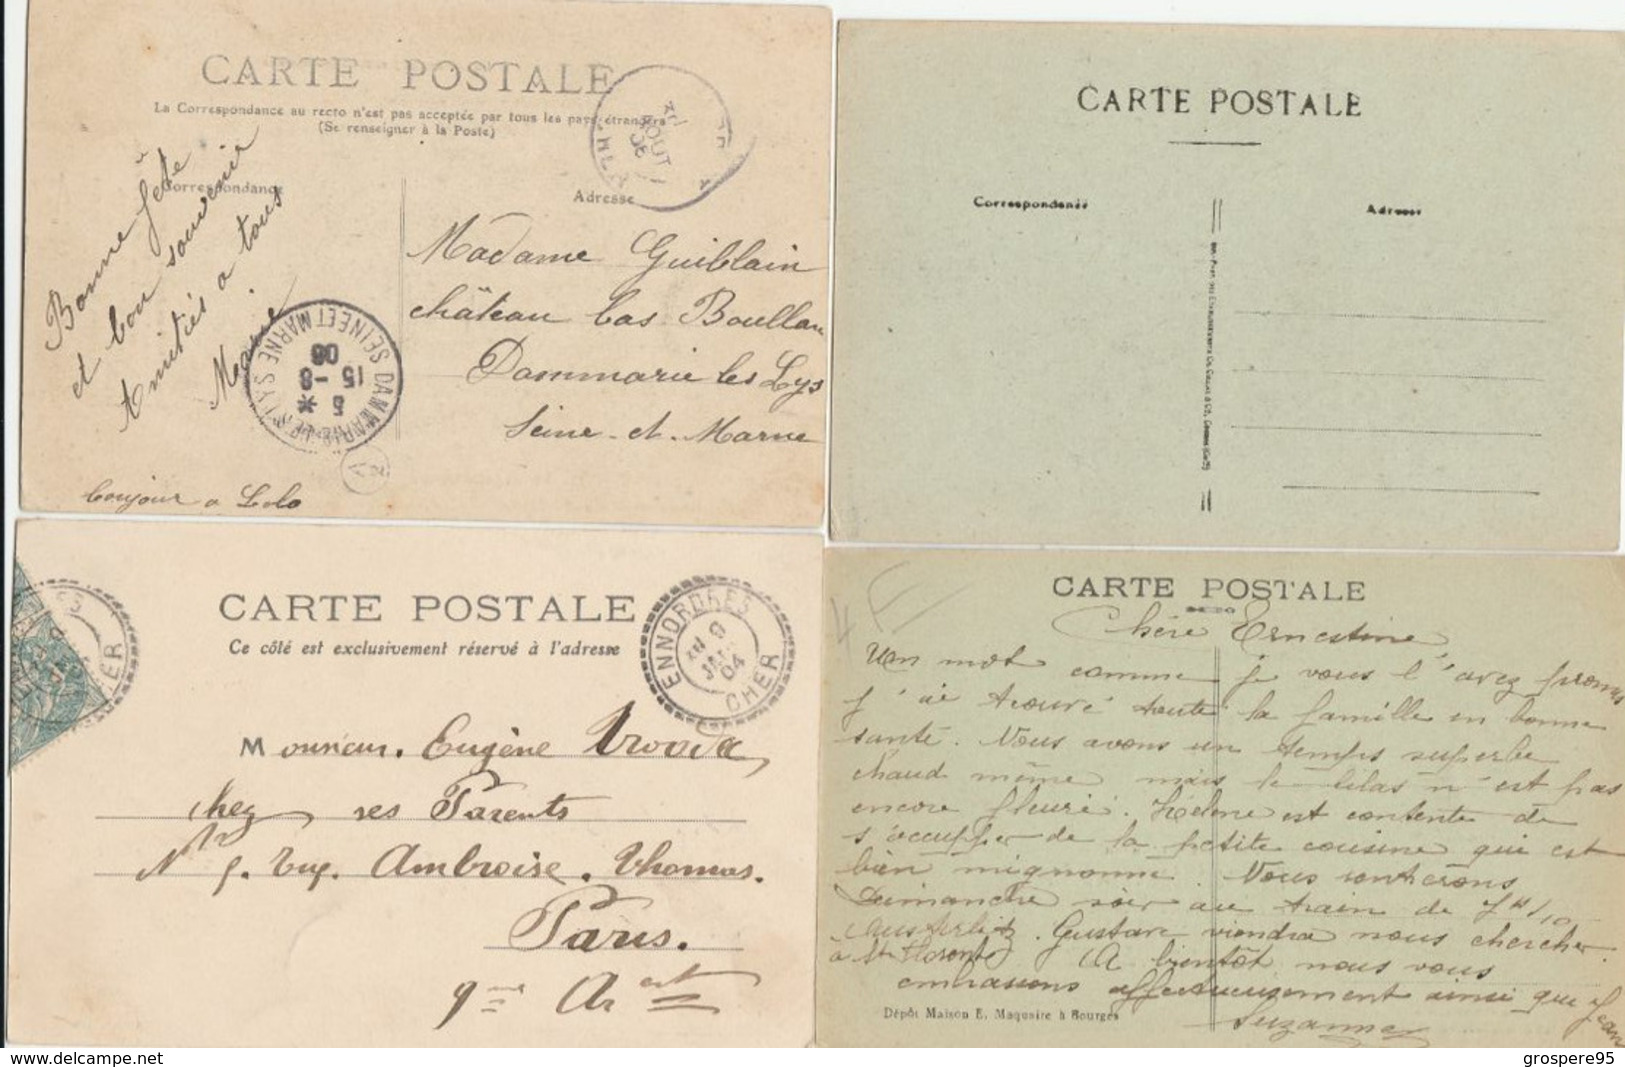 CARTE POSTALE
La Correspondance au recto n'est pas acceptée par tous les pays étrangers
(Se renseigner à la Poste)
Correspondance
Adresse
Bonne fête
et bon souvenir
Amitiés a tous
Marie
bonjour a Lolo
Madame Guiblain
château bas Boullan
Dammarie les Lys
Seine-et-Marne
AOUT
06
DAMMARIE-LES-LYS SEINE ET MARNE
5 *
15 -8
06
CARTE POSTALE
Correspondance
Adresse
CARTE POSTALE
Ce côté est exclusivement réservé à l'adresse
ENNORDRES
9
04
CHER
Monsieur. Eugène
chez ses Parents
Ambroise. Thomas.
Paris.
9me Arest
CHER
CARTE POSTALE
Chère Ernestine,
Un mot comme je vous l'avez promis
j'ai trouvé toute la famille en bonne
santé. Nous avons un temps superbe
chaud même mais le lilas n'est pas
encore fleuri. Helene est contente de
s'occupper de la petite cousine qui est
bien mignonne. Nous rentrerons
Dimanche soir au train de 7h/10
Austerlitz. Gustave viendra nous chercher
à St Florent. A bientôt nous vous
embrassons affectueusement ainsi que Jean
Suzanne
Dépôt Maison E. Maquaire à Bourges
www.delcampe.net
grospere95